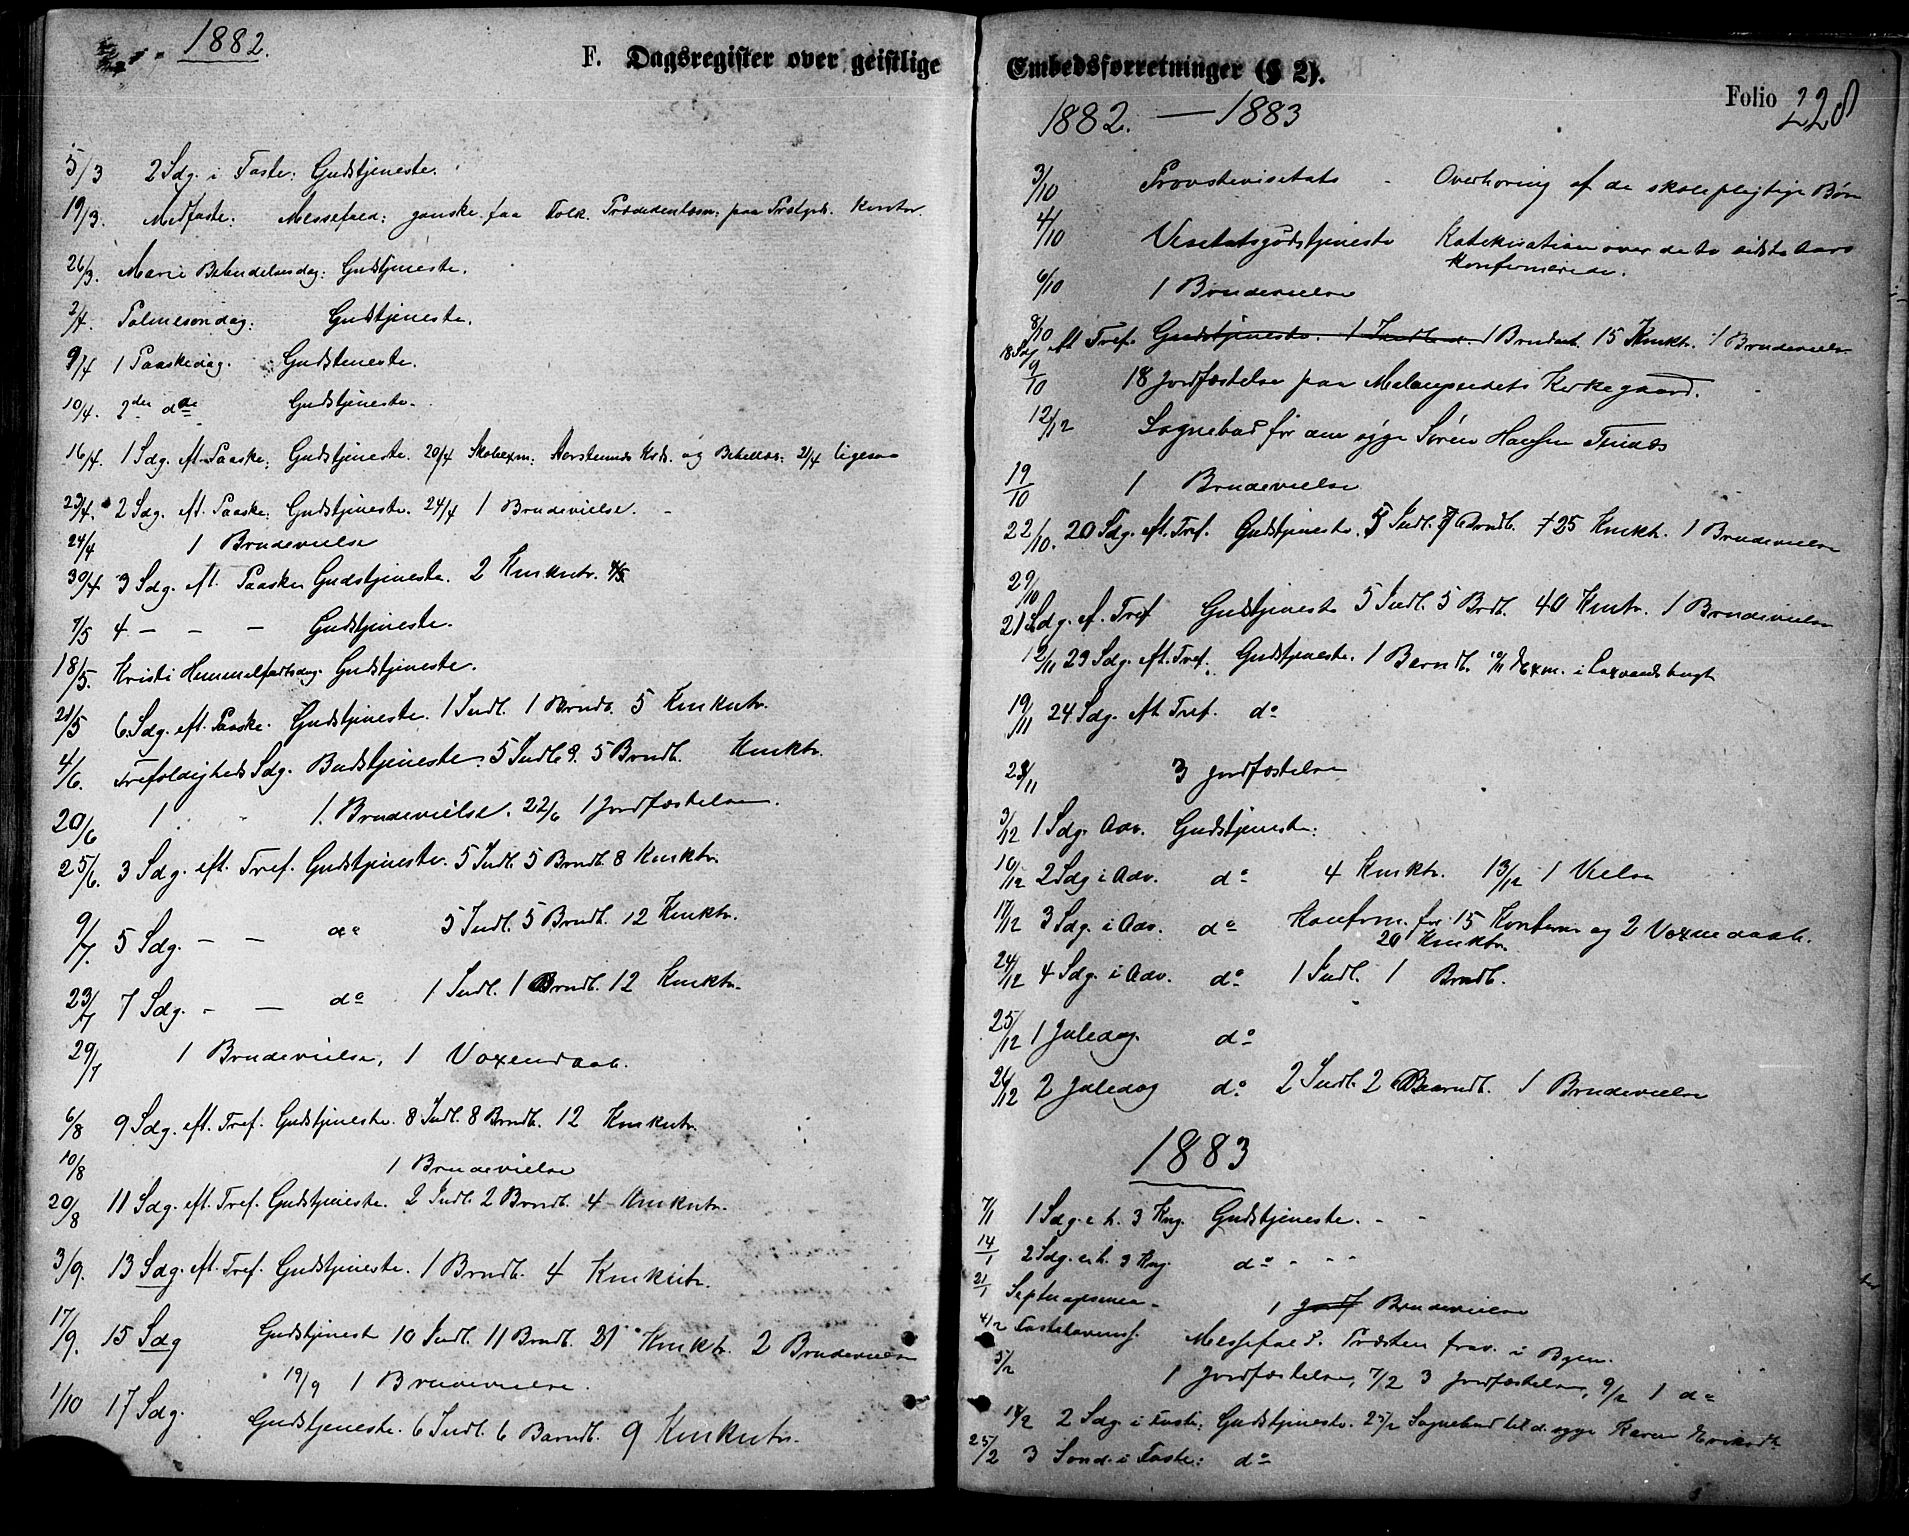 1882.
F. Dagsregister over geistlige
5/3 2 Sdg. i Faste: Gudstjeneste.
19/3. Midfaste: Messefald: ganske faa Folk. paa Kontor.
26/3. Marie Bebudelsesdag: Gudstjeneste.
2/4. Palmesøndag: Gudstjeneste.
9/4 1 Paaskedag. Gudstjeneste.
10/4. 2den do Gudstjeneste.
16/4. 1 Sdg. eft. Paaske: Gudstjeneste. 20/4 Skoleexm: og 21/4 ligesaa
23/4. 2 Sdg. eft. Paaske: Gudstjeneste. 24/4 1 Brudevielse.
24/4 1 Brudevielse
30/4 3 Sdg. eft. Paaske Gudstjeneste. 2 Kmkntr.
7/5 4 — — — Gudstjeneste.
18/5. Kristi Himmelfartsdag. Gudstjeneste.
21/5 6 Sdg. eft. Paaske. Gudstjeneste. 1 Indl. 1 Brndb. 5 Kmkntr.
4/6. Trefoldigheds Sdg. Gudstjeneste. 5 Indl. 5 Brndb. Kmktr.
20/6 1 1. Brudevielse. 22/6 1 Jordfæstelse.
25/6. 3 Sdg. eft. Tref. Gudstjeneste. 5 Indl. 5 Brndb. 8 Kmktr.
9/7. 5 Sdg. — — do 5 Indl. 5 Brndb. 12 Kmktr.
23/7 7 Sdg. - — do 1 Indl. 1 Brndb. 12 Kmktr.
29/7 1 Brudevielse, 1 Voxendaab.
6/8 9 Sdg. eft. Tref. Gudstjeneste. 8 Indl. 8 Brndb. 12 Kmkntr.
10/8 1 Brudevielse
20/8 11 Sdg. eft. Tref. Gudstjeneste. 2 Indl. 2 Brndb. 4 Kmkntr.
3/9. 13 Sdg. eft. Tref. Gudstjeneste. 1 Brndb. 4 Kmkntr.
17/9. 15 Sdg Gudstjeneste 10 Indl. 11 Brndb. 21 Kmktr. 2 Brudevielse
19/9 1 Brudevielse.
1/10 17 Sdg. Gudstjeneste. 6 Indl. 6 Barndb. 9 Kmkntr.
Embedsforretninger (§ 2).
Folio 228
1882. — 1883
3/10 Provstevisitats - Overhøring af de skolepligtige Børn
4/10 Visitatsgudstjeneste Katekisation over de to sidste Aars
Konfirmerede.
6/10 1 Brudevielse
8/10
18 Sdg eft Tref. Gudstjeneste. 1 Indl. 1 Brndb. 15 Kmktr. 1 Brudevielse
9/10 18 Jordfæstelse paa Malangseidets Kirkegaard.
12/12 Sognebud for den syge Søren Hansen
19/10 1 Brudevielse
22/10. 20 Sdg. eft. Tref. Gudstjeneste. 5 Indl. Brndb. 25 Kmktr. 1 Brudevielse
29/10
21 Sdg. ef. Tref Gudstjeneste 5 Indl. 5 Brdb. 40 Kmtr. 1 Brudevielse
12/11 23 Sdg. eft. Tref. Gudstjeneste. 1 Barndb. Exm. i Laxvandsbugt
19/11 24 Sdg. eft Tref. do
23/11 3 Jordfæstelse
3/12 1 Sdg. Adv. Gudstjeneste:
10/12 2 Sdg i Adv. do 4 Kmktr. 13/12 1 Vielse
17/12 3 Sdg. i Adv. do Konfirm. for 15 Konfirm og 2 Voxne daab.
20 Kmktr.
24/12 4 Sdg. i Adv. do 1 Indl. 1 Brndb.
25/12 1 Juledag. do
26/12 2 Juledag do 2 Indl. 2 Barndb. 1 Brudevielse
1883
7/1 1 Sdg. e. h. 3 Kng. Gudstjeneste. - -
14/1 2 Sdg. e. h. 3 Kng. do - -
21/1 Septuagesima - 1 Jordf Brudevielse
4/2 Fastelavns. Messefald. Præsten frav. i Byen.
5/2 1 Jordfæstelse, 7/2 3 Jordfæstelse, 9/2 1 do
18/2 2 Sdg. i Faste: Gudstjeneste. 25/2 Sognebud til d. syge Karen
25/2 3 Sønd. i Faste: do